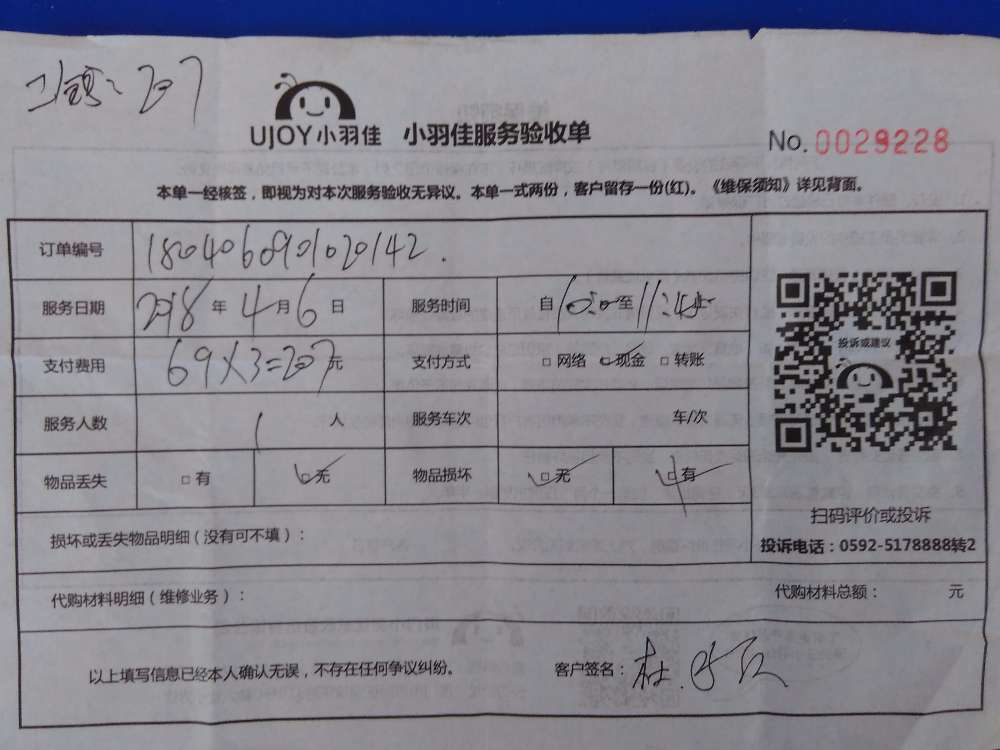 207
UJOY小羽佳 小羽佳服务验收单
No. 0029228
本单一经核签，即视为对本次服务验收无异议。本单一式两份，客户留存一份(红)。《维保须知》详见背面。
订单编号 180406091020142.
服务日期 2018 年 4 月 6 日 服务时间 自 至
支付费用 69×3=207元 支付方式 □ 网络 □ 现金 □ 转账
服务人数 1 人 服务车次 车/次
物品丢失 □ 有 □ 无 物品损坏 □ 无 □ 有
投诉或建议
扫码评价或投诉
投诉电话：0592-5178888转2
损坏或丢失物品明细（没有可不填）：
代购材料明细（维修业务）： 代购材料总额： 元
以上填写信息已经本人确认无误，不存在任何争议纠纷。 客户签名：杜